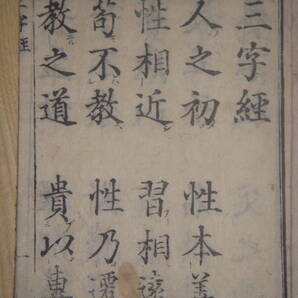 三字經
人之初 性本善
性相近 習相遠
茍不教 性乃遷
教之道 貴以專